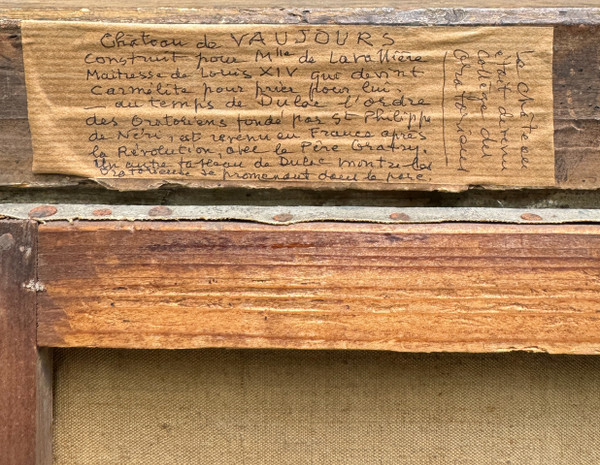 Château de VAUJOURS
Construit pour Mlle de Lavallière
Maîtresse de Louis XIV qui devint
Carmélite pour prier pour lui.
au temps de Dulac l'ordre
des Oratoriens fondé par St Philippe
de Néri, est revenu en France après
la Révolution avec le Père Gratry.
Un autre tableau de Dulac montre les
Oratoriens se promenant dans le parc
Le Château
était devenu
Collège du
Oratoriens